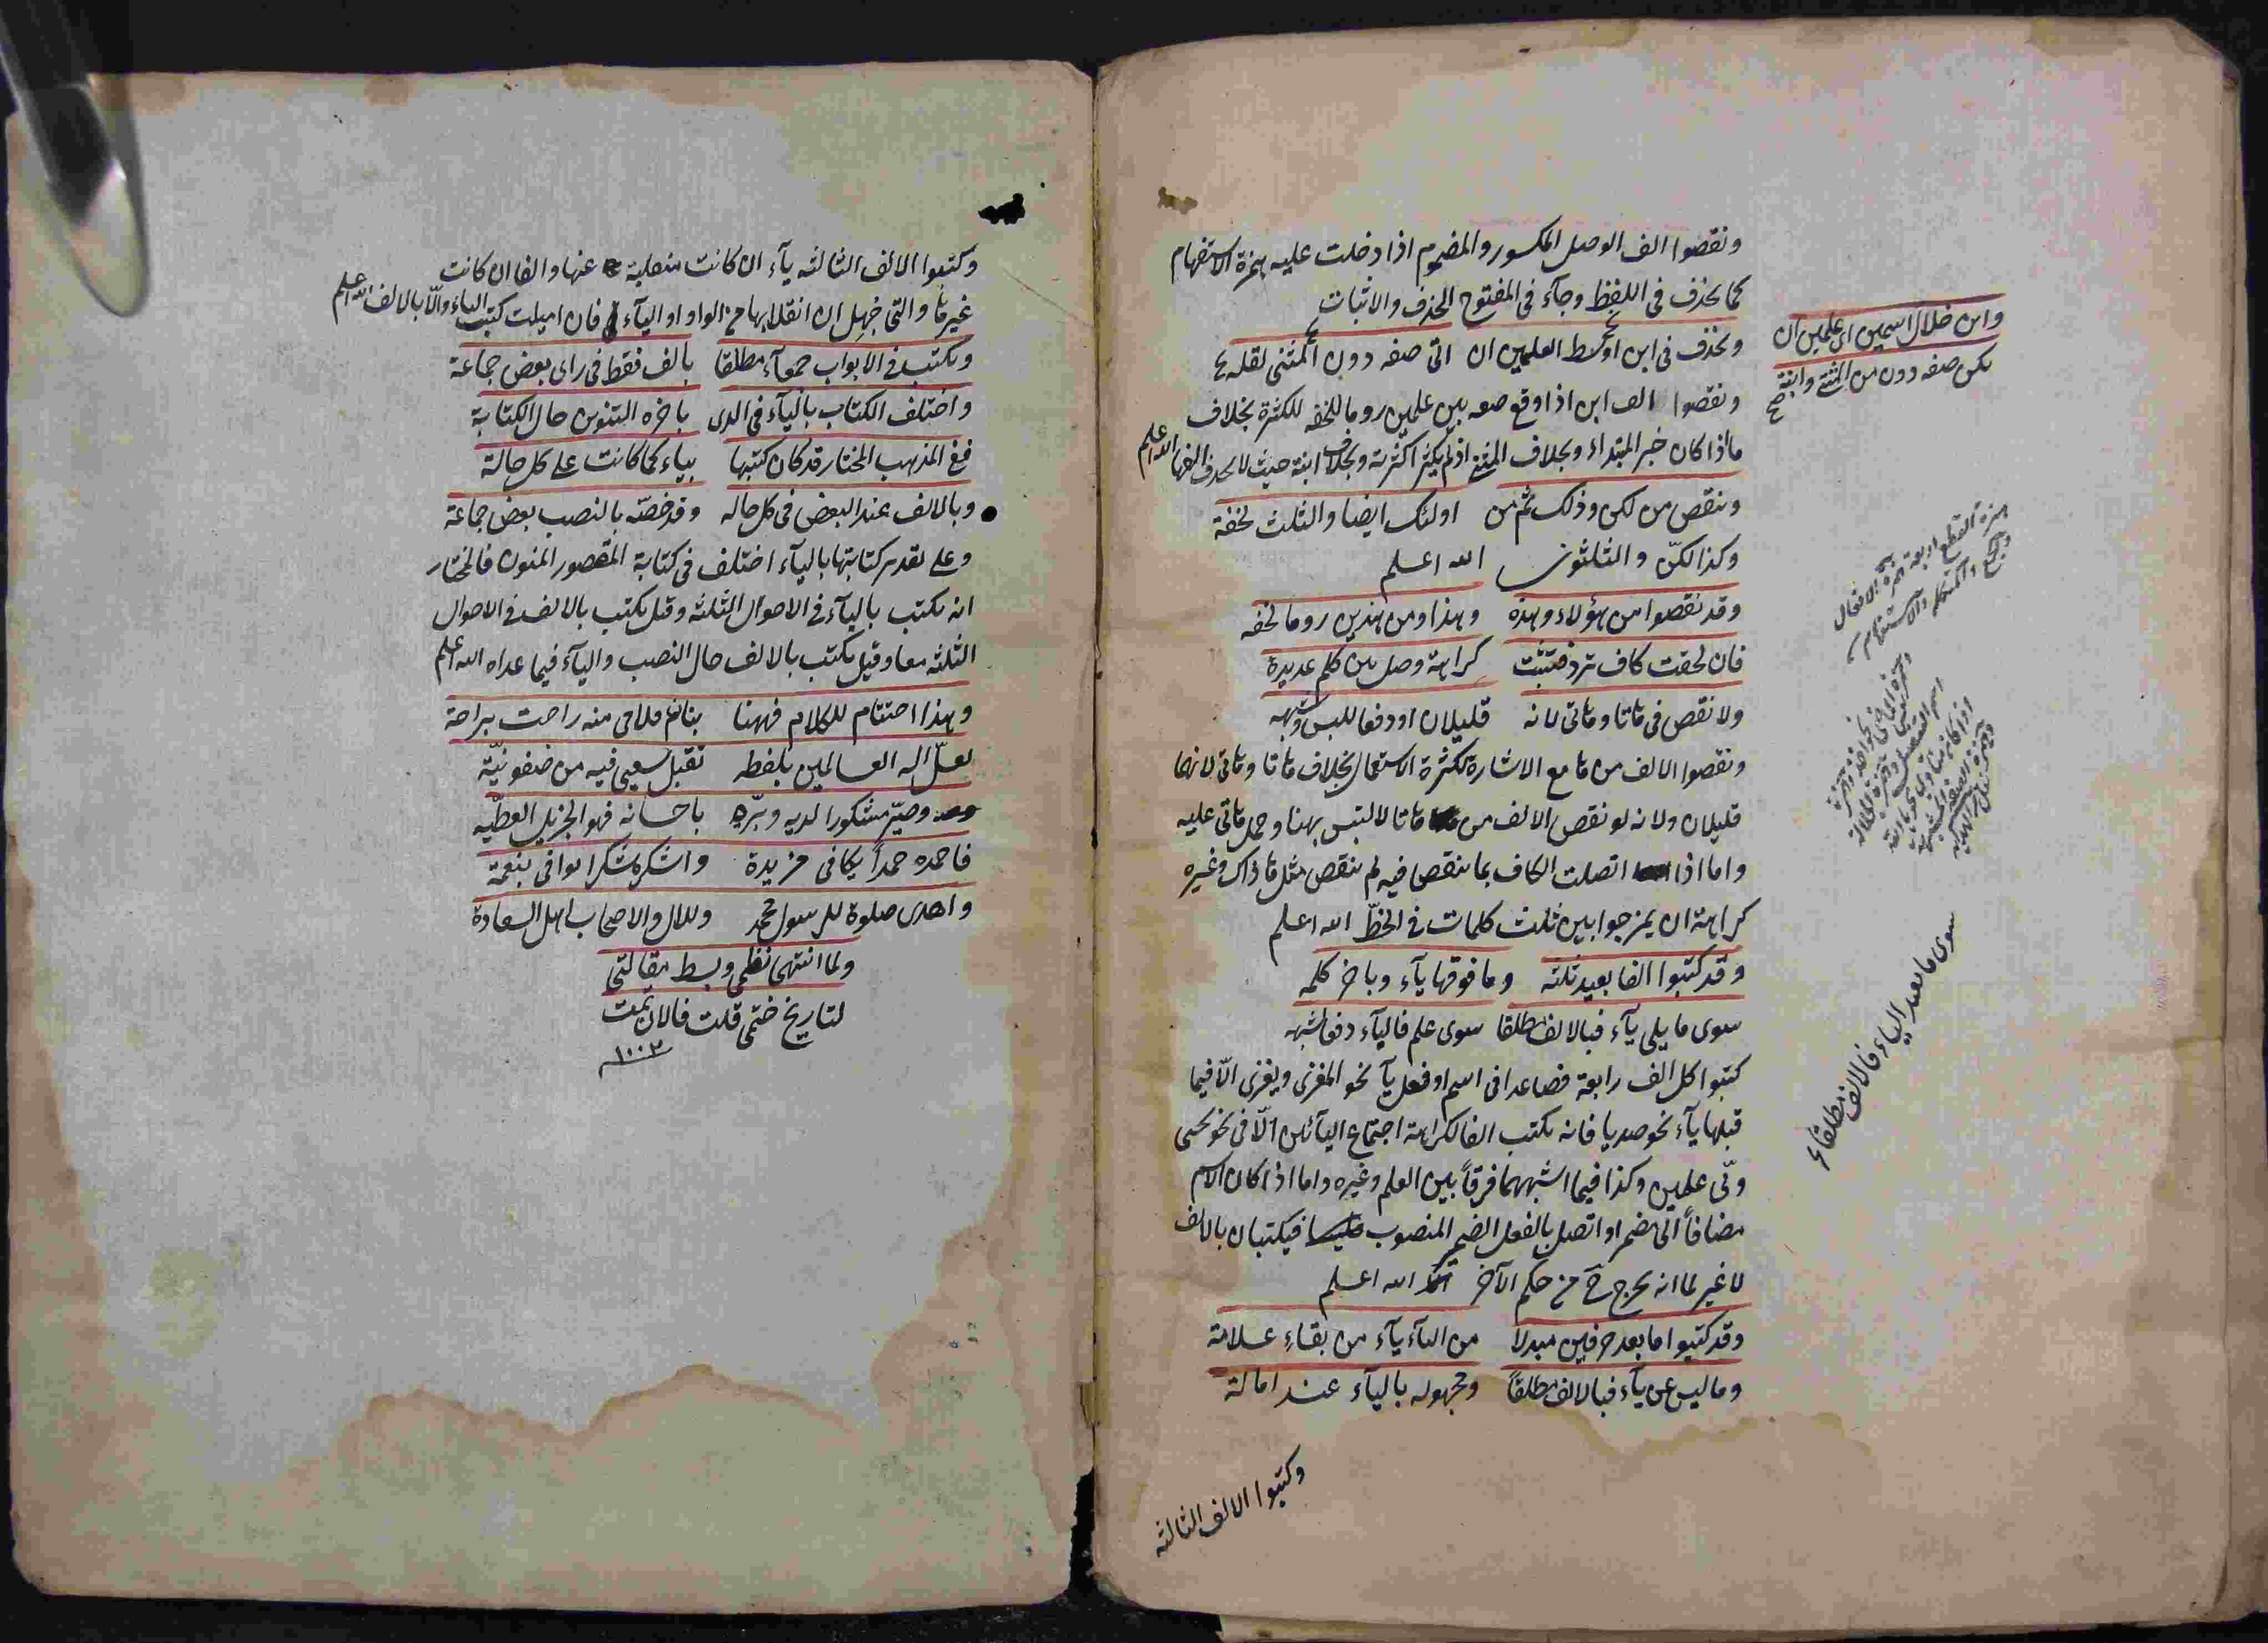 ونقصوا الف الوصل المكسور والمضموم اذا دخلت عليه همزة الاستفهام
كما يحذف فى اللفظ وجآء فى المفتوح الحذف والاثبات
ويحذف فى ابن اوسط العلمين ان اتى صفه دون المثنى لقلة
ونقصوا الف ابن اذا وقع صفه بين علمين روما للخفه للكثرة بخلاف
ما اذا كان خبر المبتداء وبخلاف المثنى اذ لم يكثر اكثريته وبخلاف ابنة حيث لا يحذف الفها الله اعلم
وينقص من لكن وذلك ثم من اولئك ايضا والثلث لخفة
وكذا لكنّ والثلثون الله اعلم
وقد نقصوا من هؤلاء وهذه وهذا ومن هذين روما لخفه
فان لحقت كاف ترد فتثبت كراهة وصل من كلم عديدة
ولا نقص فى هاتا وهاتى لانه قليلان او دفعا للبس وشبهه
ونقصوا الالف من ها مع الاشارة لكثرة الاستعمال بخلاف هاتا وهاتى لانهما
قليلان ولانه لو نقص الالف من هاتا لالتبس بهنا وحمل هاتى عليه
واما اذا اتصلت الكاف بما ينقص فيه لم ينقص مثل هاذاك وغيره
كراهة ان يمزجوا بين ثلث كلمات فى الخطّ الله اعلم
وقد كتبوا الفا بعيد ثلثه وما فوقها يآء وباخر كلمه
سوى ما يلى يآء فبالالف مطلقا سوى علم فاليآء دفعا لشبهه
كتبوا كل الف رابعة فصاعدا فى اسم او فعل يآ نحو المغزى ويغزى الّا فيما
قبلها يآء نحو صديا فانه يكتب الفا لكراهة اجتماع اليآئين الّا فى نحو يحيى
وريّى علمين وكذا فيما اشبههما فرقاً بين العلم وغيره واما اذا كان الاسم
مضافاً الى مضمر او اتصل بالفعل الضمير المنصوب فيكتبان بالالف
لا غير لما انه يخرج ح من حكم الآخر الله اعلم
وقد كتبوا ما بعد حرفين مبدلا من اليآء يآء من بقاءِ علامة
وما ليس عن يآء فبالالف مطلقاً ومجهوله باليآء عند امالة
وكتبوا الالف الثالثه
وابن خلال اسمين اى علمين ان
يكن صفه دون من المثنى وابنة
صح
همزة القطع اربعة همزة الافعال
سوى ما بعد الياء فالالف مطلقا
وكتبوا الالف الثالثه يآء ان كانت منقلبة عنها والفا ان كانت
غيرها والتى جهل ان انقلابها من الواو او اليآء فان اميلت كتبت بالياء والّا بالالف الله اعلم
ويكتب فى الابواب جمعآء مطلقا بالف فقط فى راى بعض جماعة
واختلف الكتاب باليآء فى الذى باخره التنوين حال الكتابة
ففى المذهب المختار قد كان كتبها بياء كما كانت على كل حالة
وبالالف عند البعض فى كل حاله وقد خصّه بالنصب بعض جماعة
وعلى تقدير كتابتها باليآء اختلف فى كتابة المقصور المنون فالمختار
انه يكتب باليآء فى الاحوال الثلثه وقيل يكتب بالالف فى الاحوال
الثلثه معا وقيل يكتب بالالف حال النصب واليآء فيما عداه الله اعلم
وهذا اختتام للكلام فههنا بنانى فلاحى منه راحت براحة
لعلّ اله العالمين بلفظه تقبل سعيى فيه من صفو نيّة
وصيّر مشكورا لديه وبرّه باحسانه فهو الجزيل العطيّه
فاحمده حمداً يكافى مزيدة واشكره شكرا يوافى بنعمة
واهدى صلوة للرسول محمد وللال والاصحاب اهل السعادة
ولما انتهى نظمى وبسط مقالتى
لتاريخ ختمى قلت فالان تمت
١٠٠٣